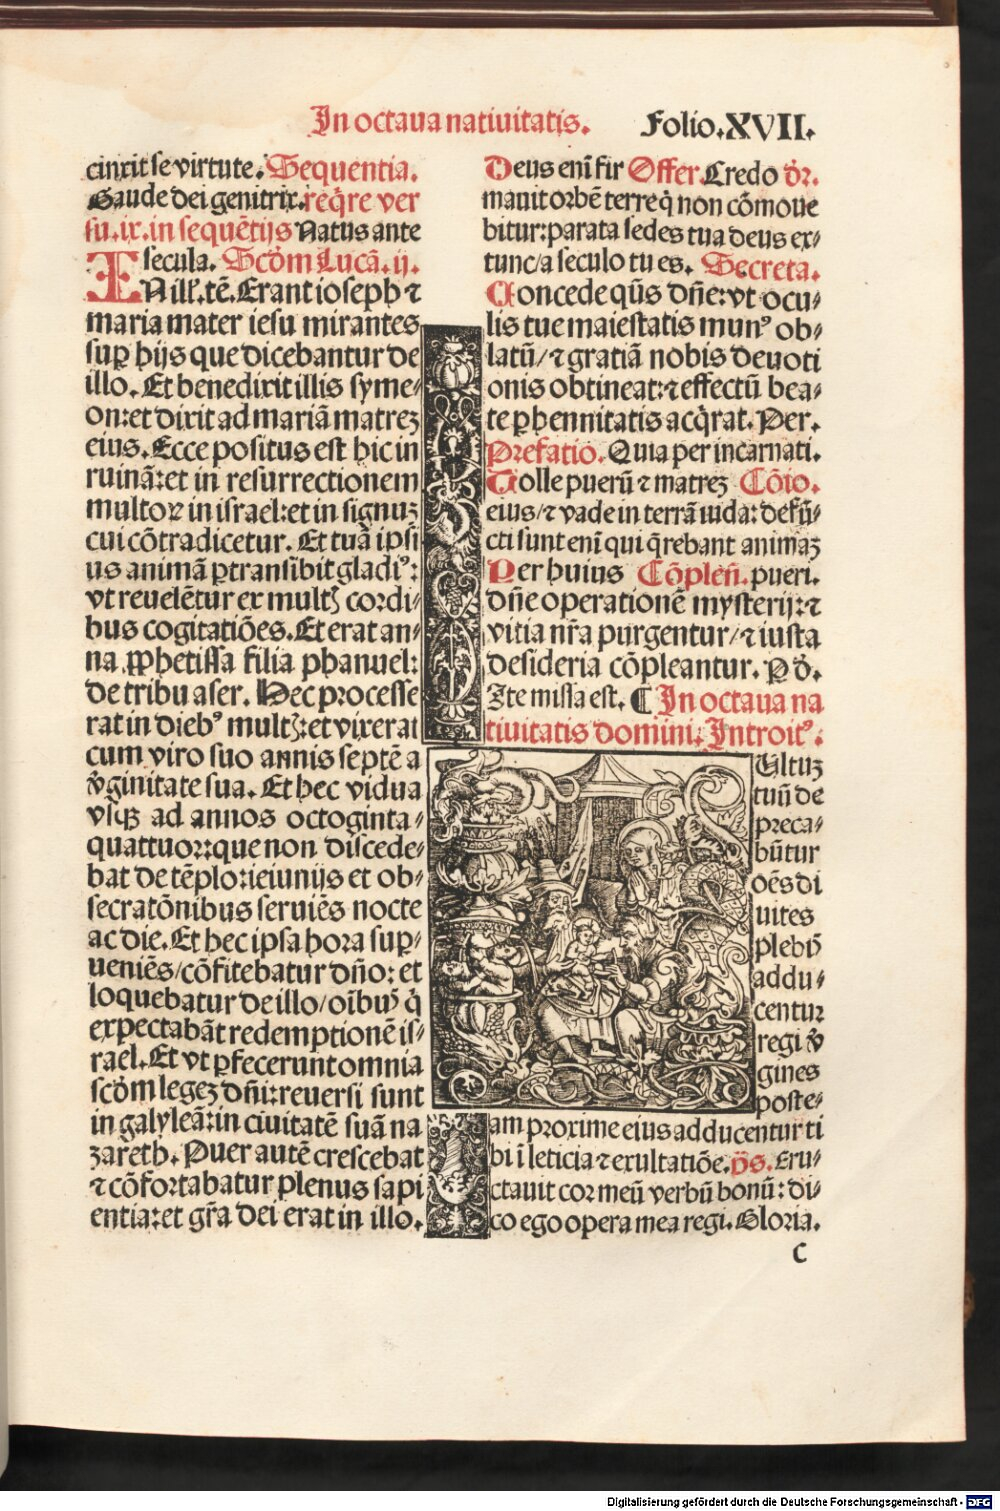 In octaua natiuitatis. Folio.XVII.
cinxit se virtute. Sequentia.
Gaude dei genitrix. reqr̃e ver
su.ix.in sequētijs Natus ante
secula. Scd̃m Lucā.ij.
IN ill̃.tē. Erant ioseph ⁊
maria mater iesu mirantes
suꝑ hijs que dicebantur de
illo. Et benedixit illis syme⸗
on: et dixit ad mariā matreꝫ
eius. Ecce positus est hic in
ruinā: et in resurrectionem
multoꝝ in israel: et in signuꝫ
cui cōtradicetur. Et tuā ipsi⸗
us animā ꝑtransibit gladiꝰ:
vt reuelētur ex multꝭ cordi⸗
bus cogitatiōes. Et erat an⸗
na ꝓphetissa filia phanuel:
de tribu aser. Hec processe
rat in diebꝰ multꝭ: et vixerat
cum viro suo annis septē a
v̾ginitate sua. Et hec vidua
vsqꝫ ad annos octoginta⸗
quattuor: que non discede⸗
bat de tēplo: ieiunijs et ob⸗
secratōnibus seruiēs nocte
ac die. Et hec ipsa hora suꝑ⸗
ueniēs/cōfitebatur dño: et
loquebatur de illo/oībuꝫ q̇
expectabāt redemptionē is⸗
rael. Et vt ꝑfecerunt omnia
scd̃m legeꝫ dñi: reuersi sunt
in galyleā: in ciuitatē suā na
zareth. Puer autē crescebat
⁊ cōfortabatur plenus sapi
entia: et gr̃a dei erat in illo.
Deus enī fir Offer. Credo d̃r.
mauit orbē terre q̇ non cōmoue
bitur: parata sedes tua deus ex⸗
tunc/a seculo tu es. Secreta.
Concede qũs dñe: vt ocu⸗
lis tue maiestatis munꝰ ob⸗
latū/⁊ gratiā nobis deuoti
onis obtineat: ⁊ effectū bea⸗
te ꝑhennitatis acq̇rat. Per.
Prefatio. Quia per incarnati.
Tolle puerū ⁊ matreꝫ Cōio.
eius/⁊ vade in terrā iuda: defū⸗
cti sunt enī qui q̄rebant animaꝫ
Per huius Cōpleñ. pueri.
dñe operationē mysterij: ⁊
vitia nr̃a purgentur/⁊ iusta
desideria cōpleantur. P d̃.
Ite missa est. ¶ In octaua na
tiuitatis domini. Introitꝰ.
Vltuꝫ
tuū de
preca⸗
būtur
oēs di
uites
plebꝭ
addu⸗
centur
regi v̾
gines
poste⸗
am proxime eius adducentur ti
bi ī leticia ⁊ exultatiōe. p̄s. Eru⸗
ctauit cor meū verbū bonū: di⸗
co ego opera mea regi. Gloria.
C
Digitalisierung gefördert durch die Deutsche Forschungsgemeinschaft - DFG